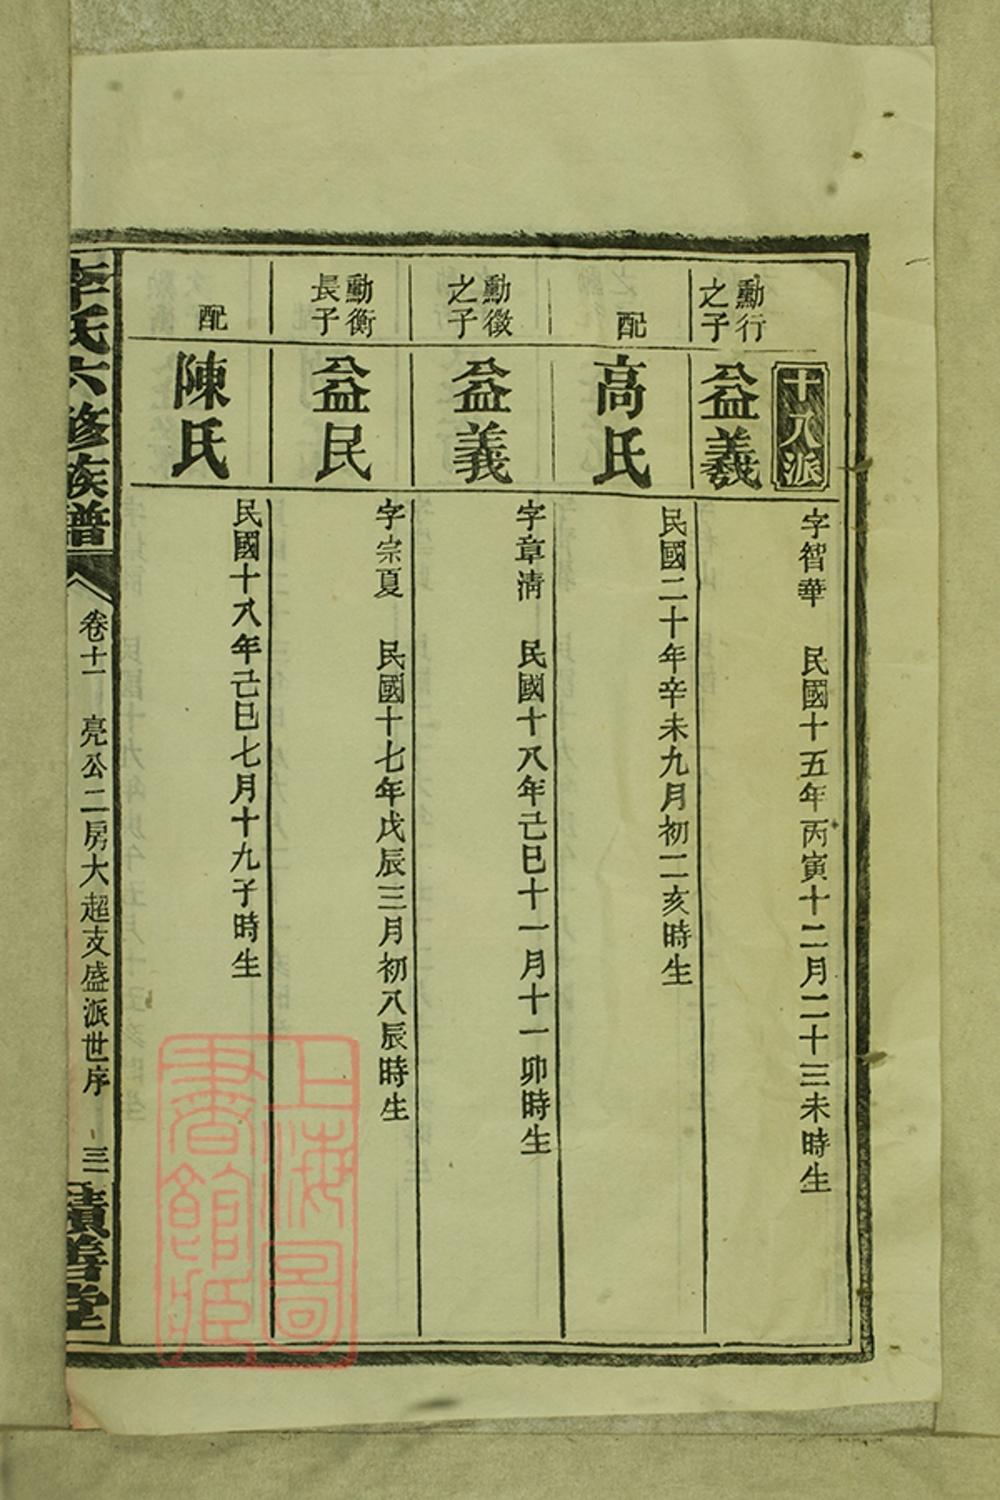 十八派
勳行
之子
益羲
字智華 民國十五年丙寅十二月二十三未時生
配
高氏
民國二十年辛未九月初二亥時生
勳徵
之子
益義
字章清 民國十八年己巳十一月十一卯時生
勳衡
長子
益民
字宗夏 民國十七年戊辰三月初八辰時生
配
陳氏
民國十八年己巳七月十九子時生
李氏六修族譜
卷十一 亮公二房大超支盛派世序 三一
積善堂
上海圖
書館藏